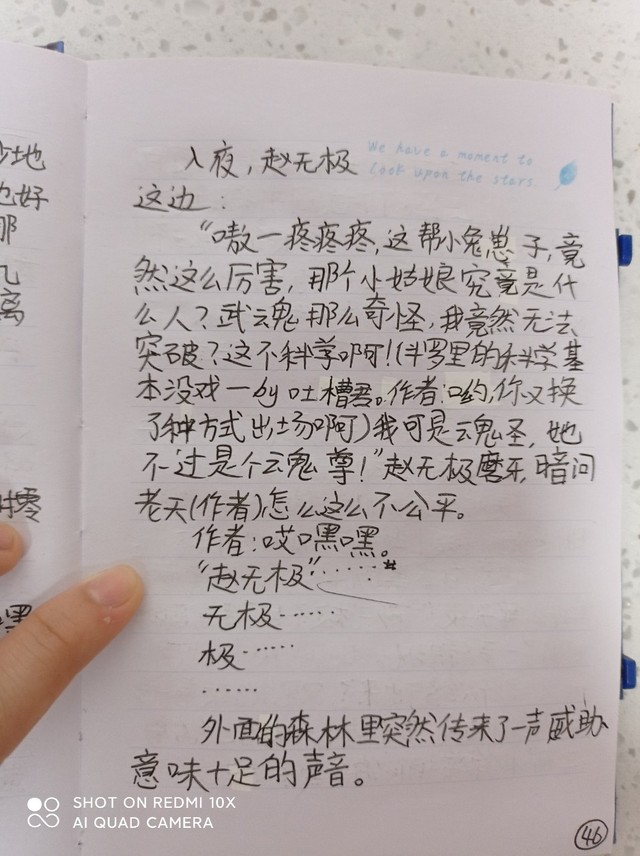 入夜，赵无极
We have a moment to
look upon the stars.
这边：
“嗷一疼疼疼，这帮小兔崽子，竟
然这么厉害，那个小姑娘究竟是什
么人？武魂那么奇怪，我竟然无法
突破？这不科学啊！（斗罗里的科学基
本没戏一by吐槽君。作者：哟，你又换
了种方式出场啊）我可是魂圣，她
不过是个魂尊！”赵无极磨牙，暗问
老天（作者）怎么这么不公平。
作者：哎嘿嘿。
“赵无极”……
无极……
极……
……
外面的森林里突然传来了一声威胁
意味十足的声音。
46
沙地
也好
那
几
离
零
嘿
SHOT ON REDMI 10X
AI QUAD CAMERA